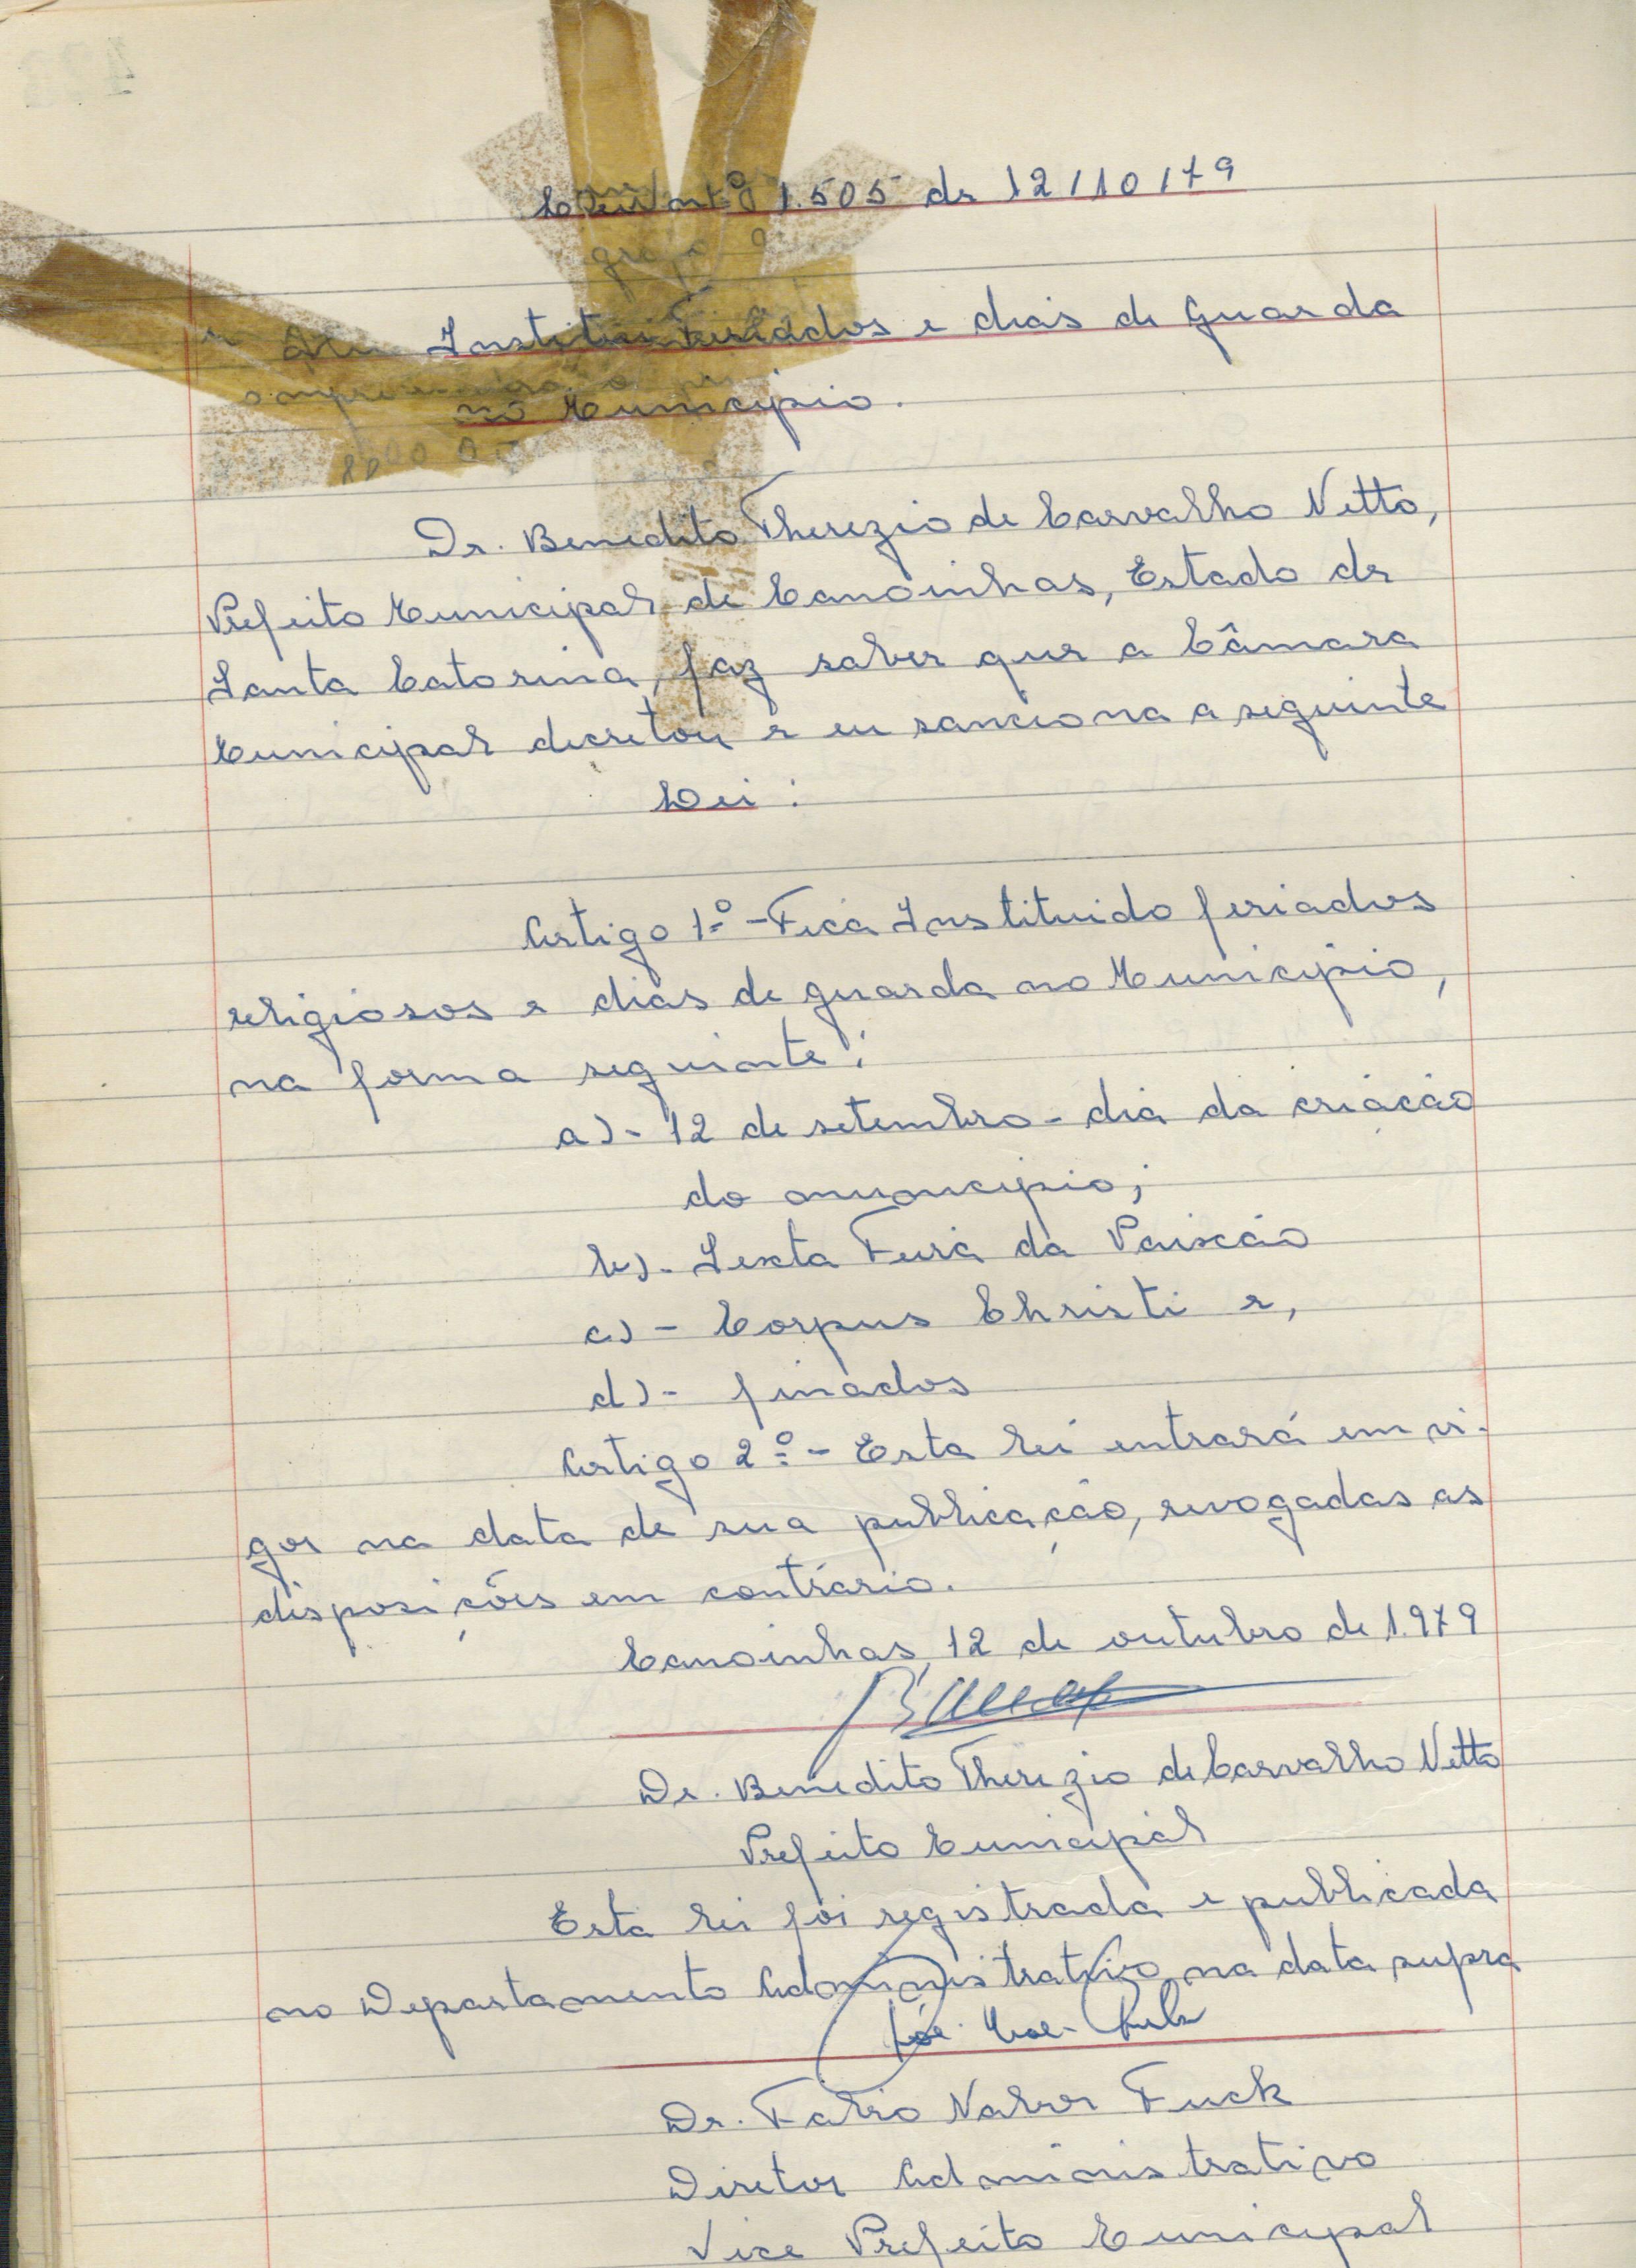 Lei nº 1.505 de 12/10/79
Institui Feriados e dias de Guarda
no Município.
Dr. Benedito Therezio de Carvalho Netto,
Prefeito Municipal de Canoinhas, Estado de
Santa Catarina, faz saber que a Câmara
Municipal decretou e eu sanciona a seguinte
Lei:
Artigo 1º - Fica Instituido feriados
religiosos e dias de guarda no Município,
na forma seguinte:
a) - 12 de setembro - dia da criação
do municipio;
b) - Sexta Feira da Paixão
c) - Corpus Christi e,
d) - finados
Artigo 2º - Esta lei entrará em vi-
gor na data de sua publicação, revogadas as
disposições em contrário.
Canoinhas, 12 de outubro de 1.979
Dr. Benedito Therezio de Carvalho Netto
Prefeito Municipal
Esta lei foi registrada e publicada
no Departamento Administrativo, na data supra
Dr. Fabio Nabor Fuck
Diretor Administrativo
Vice Prefeito Municipal